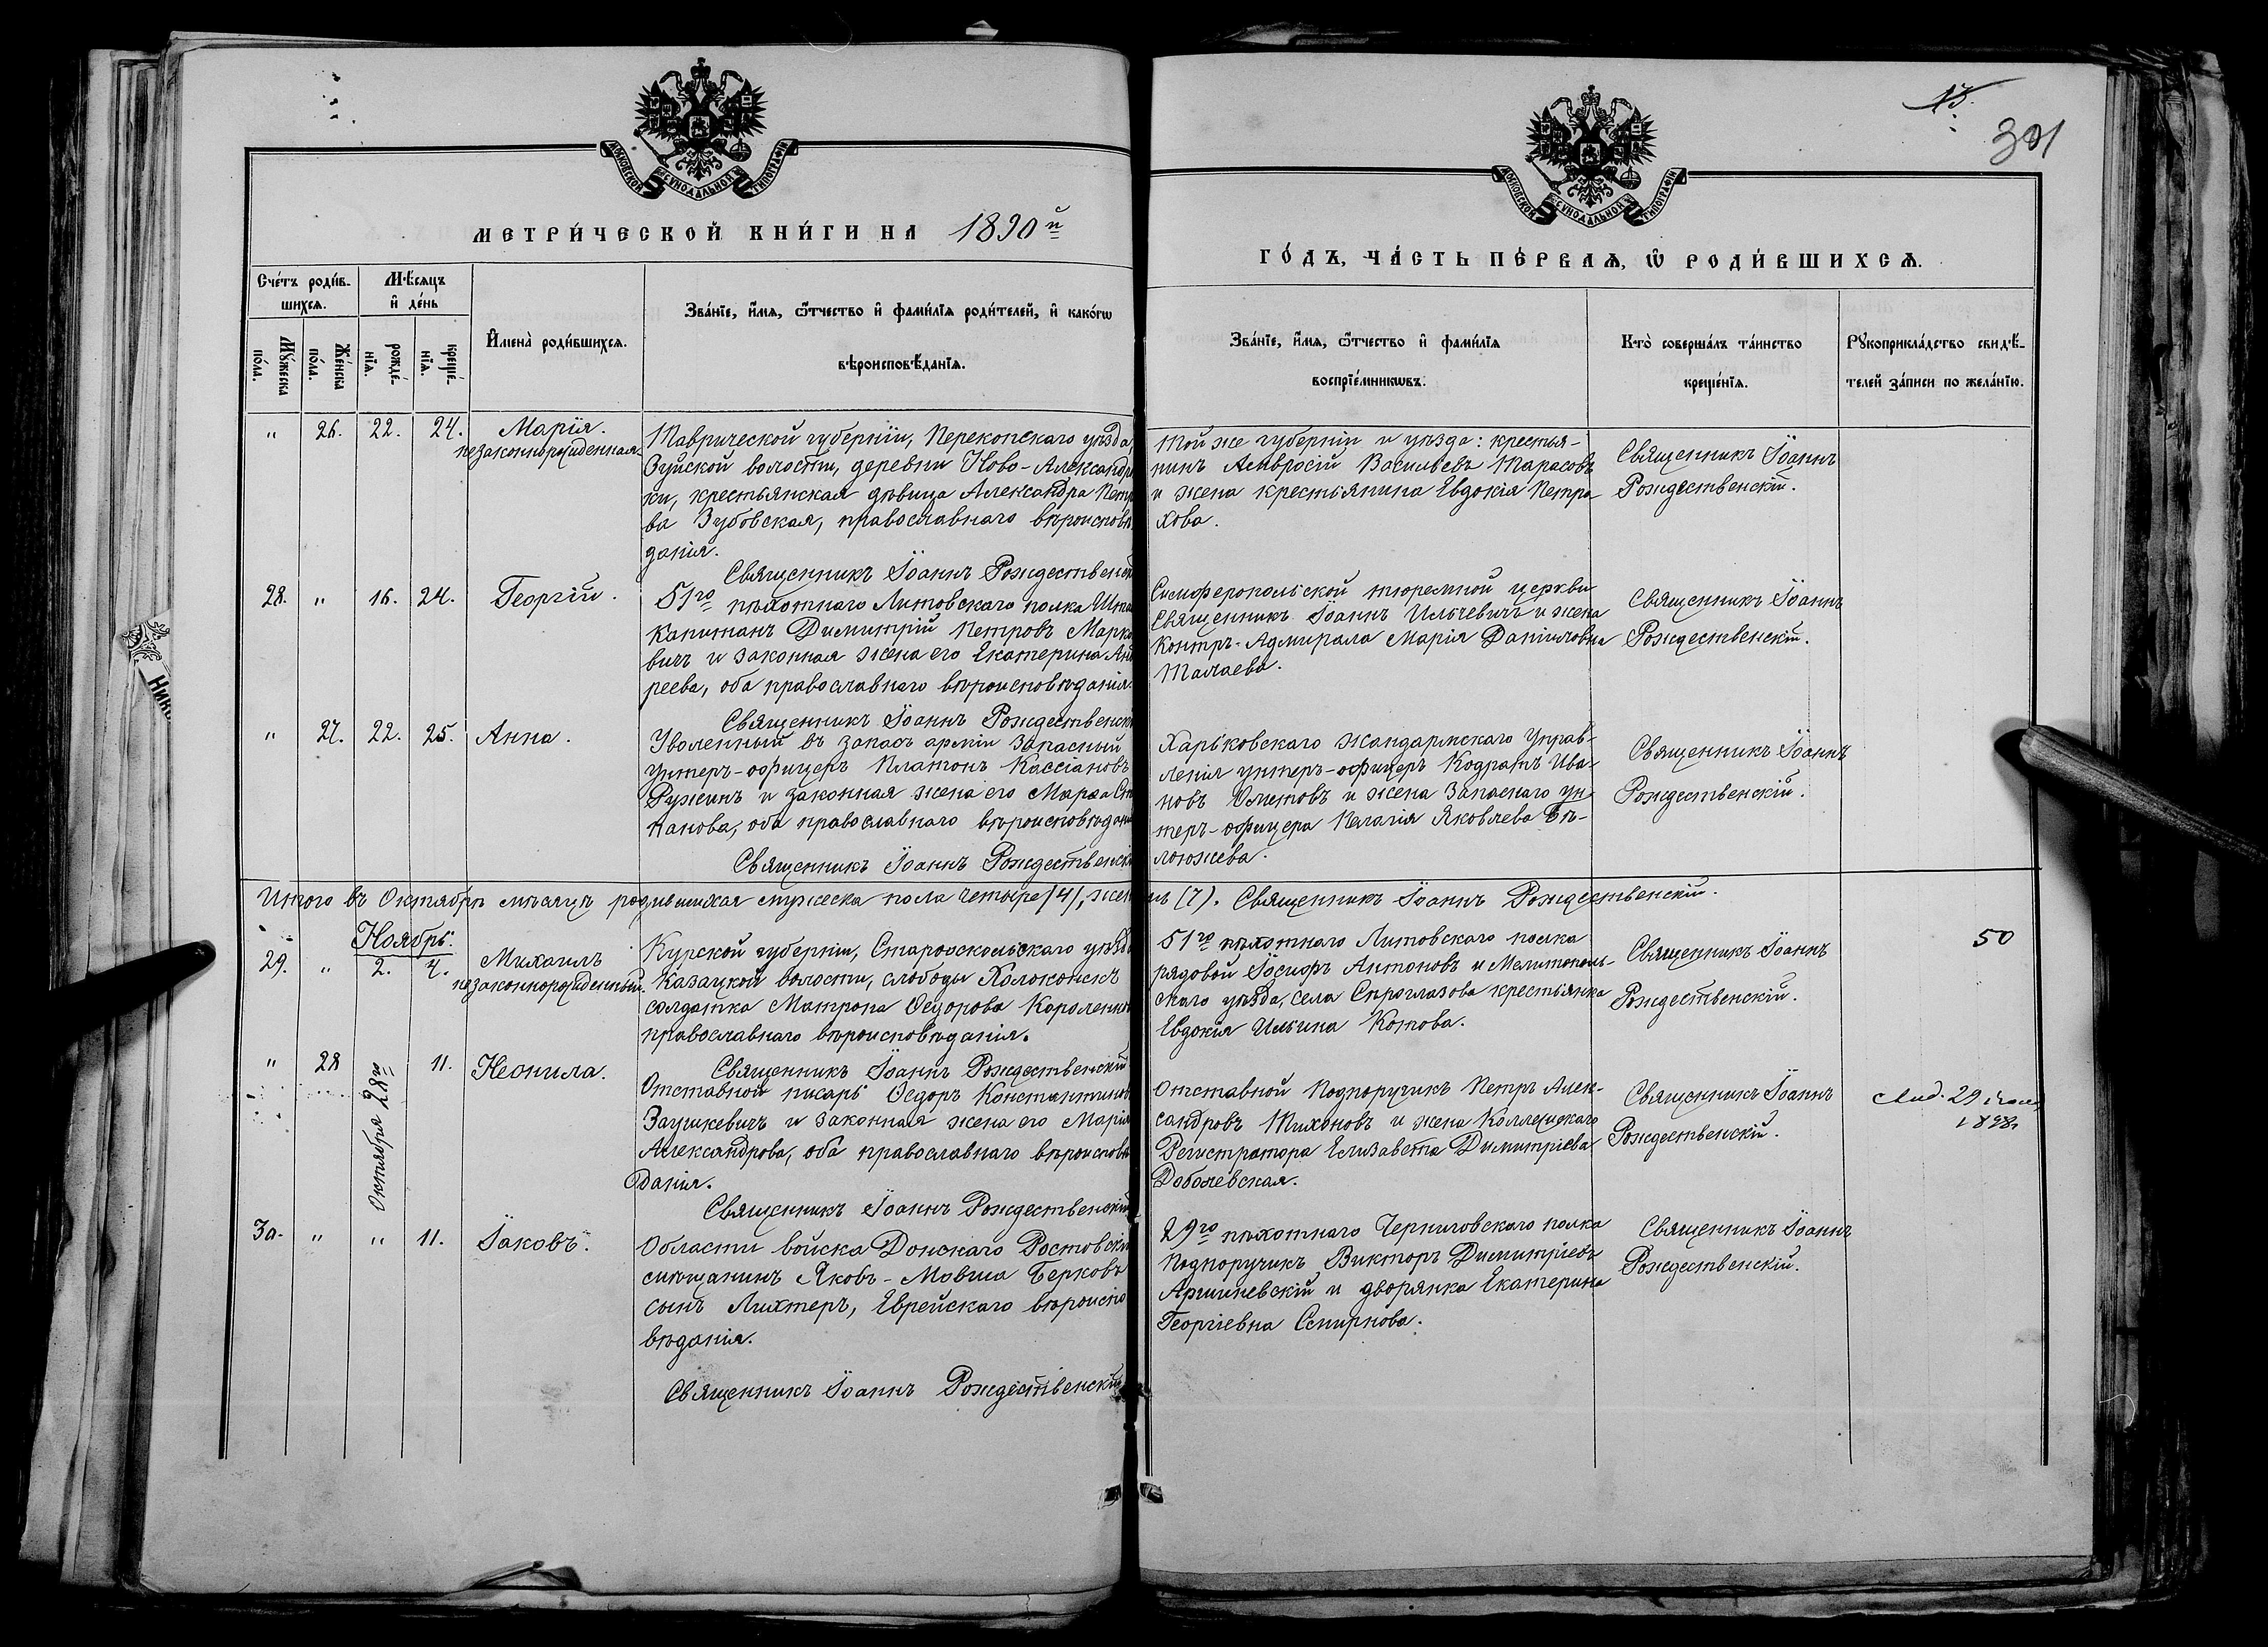 15.
301
МОСКОВСКОЙ СѴНОДАЛЬНОЙ ТИПОГРАФІИ
МОСКОВСКОЙ СѴНОДАЛЬНОЙ ТИПОГРАФІИ
МЕТРИ́ЧЕСКОЙ КНИ́ГИ НА 1890й
ГО́ДЪ, ЧА́СТЬ ПЕ́РВАѦ, Ѡ РОДИ́ВШИХСѦ.
Сче́тъ роди́в-
шихсѧ.
Мѣ́сѧцъ
и҆ де́нь
Мꙋ́жеска
по́ла.
Же́нска
по́ла.
рожде́-
нїѧ.
креще́-
нїѧ.
И҆мена̀ роди́вшихсѧ.
Зва́нїе, и҆́мѧ, ѻ҆́тчество и҆ фами́лїѧ роди́телей, и҆ како́гѡ
вѣроисповѣ́данїѧ.
Зва́нїе, и҆́мѧ, ѻ҆́тчество и҆ фами́лїѧ
воспрїе́мникѡвъ.
Кто̀ соверша́лъ та́инство
креще́нїѧ.
Рꙋкоприкла́дство свидѣ́-
телей за́писи по жела́нїю.
" 26. 22. 24. Марія.
незаконнорожденная
Таврической губерніи, Перекопскаго уѣзда,
волости, деревни Ново-Александров
ки, крестьянская дѣвица Александра Петро
ва Зубовская, православнаго вѣроисповѣ
данія.
Священникъ Іоаннъ Рождественскій
Той же губерніи и уѣзда: крестья-
нинъ Амвросій Васильевъ Тарасовъ
и жена крестьянина Евдокія Петра-
хова.
Священникъ Іоаннъ
Рождественскій.
28. " 16. 24. Георгій.
51го пѣхотнаго Литовскаго полка Штабсъ
Капитанъ Димитрій Петровъ Марко
вичъ и законная жена его Екатерина Анд
реева, оба православнаго вѣроисповѣданія.
Священникъ Іоаннъ Рождественскій
Симферопольской тюремной церкви
Священникъ Іоаннъ Ильчевичъ и жена
Контръ-Адмирала Марія Даніиловна
Талаева.
Священникъ Іоаннъ
Рождественскій.
" 27. 22. 25. Анна.
Уволенный въ запасъ арміи запасный
унтеръ-офицеръ Платонъ Кассіановъ
Ружинъ и законная жена его Марѳа Сте
панова, оба православнаго вѣроисповѣданія
Священникъ Іоаннъ Рождественскій
Харьковскаго Жандармскаго Управ-
ленія унтеръ-офицеръ Кодратъ Ива-
новъ и жена запаснаго ун
теръ-офицера Пелагія Яковлева Бѣ-
Священникъ Іоаннъ
Рождественскій.
Итого въ Октябрѣ мѣсяцѣ родившихся мужеска пола четыре (4), жен (7). Священникъ Іоаннъ Рождественскій.
Ноябрь.
29. " 2. 4. Михаилъ
незаконнорожденный.
Курской губерніи, Старооскольскаго уѣзда
Казацкой волости, слободы
солдатка Матрона Ѳедорова
православнаго вѣроисповѣданія.
Священникъ Іоаннъ Рождественскій
51го пѣхотнаго Литовскаго полка
рядовой Іосифъ Антоновъ и Мелитополь-
скаго уѣзда, села Сѣроглазова крестьянка
Евдокія Ильина Котова.
Священникъ Іоаннъ
Рождественскій.
50
" 28 Октября 28го 11. Неонила.
Отставной писарь Ѳедоръ Константинов
и законная жена его Марія
Александрова, оба православнаго вѣроисповѣ
данія.
Священникъ Іоаннъ Рождественскій
Отставной Подпоручикъ Петръ Алек-
сандровъ Тихоновъ и жена Коллежскаго
Регистратора Елизавета Димитріева
Доболевская.
Священникъ Іоаннъ
Рождественскій.
29
1898
30. " " 11. Іаковъ.
Области войска Донскаго Ростовскій
мѣщанинъ Яковъ-Мовша Берковъ
сынъ Лихтеръ, Еврейскаго вѣроиспо
вѣданія.
Священникъ Іоаннъ Рождественскій
29го пѣхотнаго Черниговскаго полка
Подпоручикъ Викторъ Димитріевъ
Аршиневскій и дворянка Екатерина
Георгіевна Смирнова.
Священникъ Іоаннъ
Рождественскій.